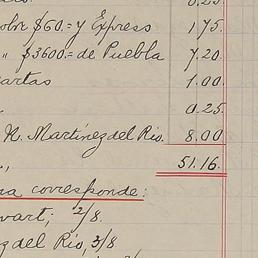 0.25
sobre $60.= y Express 1.75
" $3600.= de Puebla 7.20
cartas 1.00
0.25
N. Martínez del Rio. 8.00
51.16
corresponde:
2/8.
del Rio, 3/8